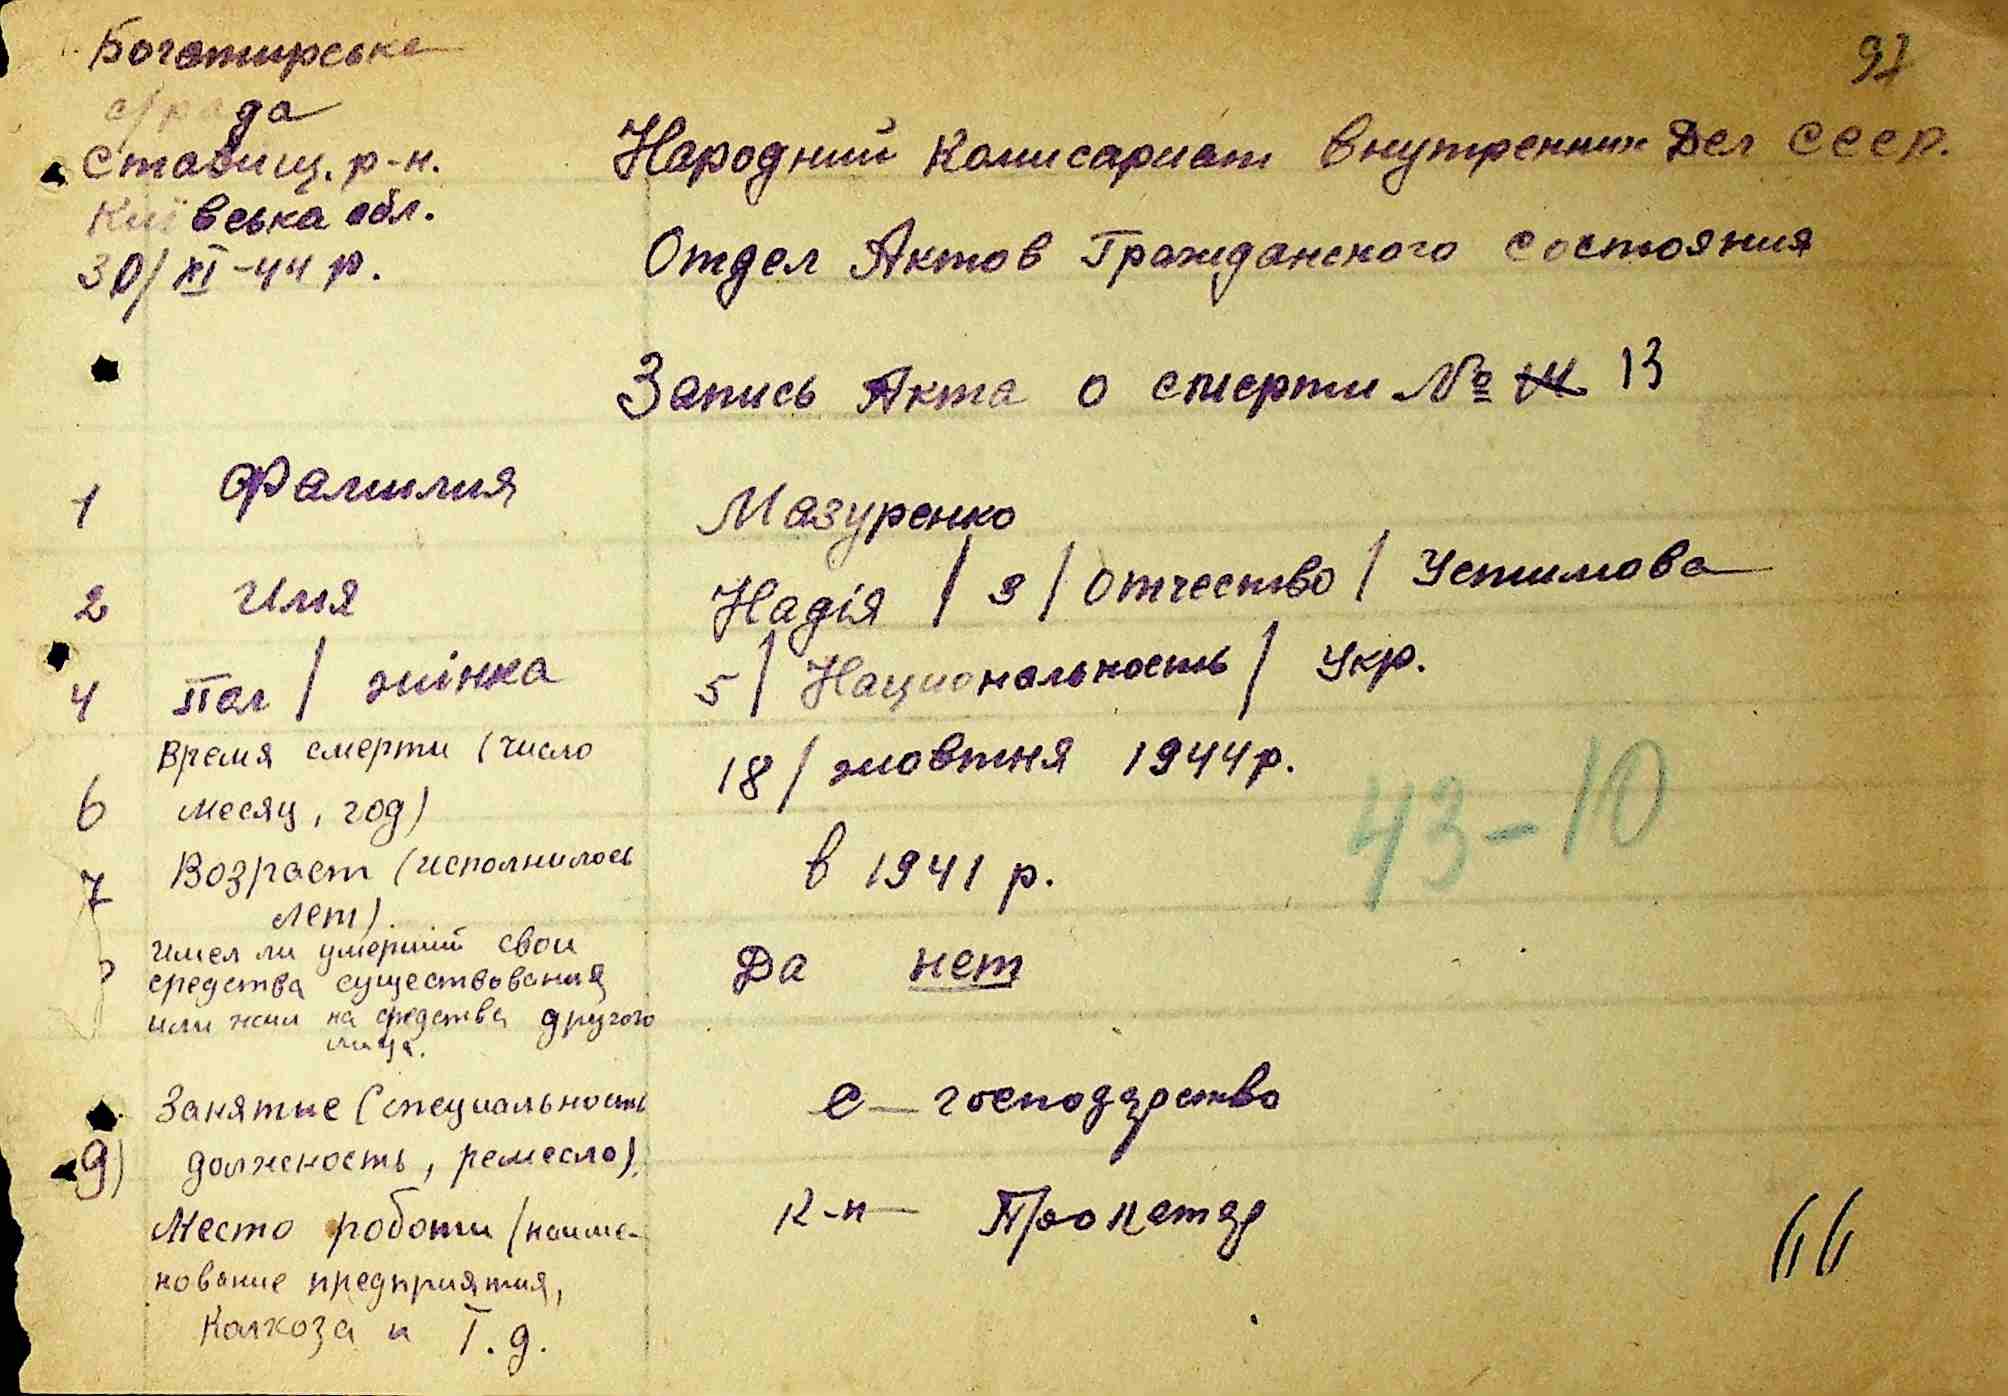 97
Богатирська
с/рада
Ставищ. р-н.
Київська обл.
30/XI-44 р.
Народний Комисариат Внутренних Дел СССР.
Отдел Актов Гражданского состояния
Запись Акта о смерти № 13
1 Фамилия Мазуренко
2 Имя Надія / 3 / Отчество / Устимова
4 Пол / жінка 5 / Национальность / Укр.
Время смерти (число
6 месяц, год) 18 / жовтня 1944 р.
43-10
7 Возраст (исполнилось в 1941 р.
лет).
Имел ли умерший свои Да нет
средства существования
или жил на средства другого
лица.
Занятие (специальность с-господарство
9) должность, ремесло).
Место роботи (наиме- к-п Пролетар
нование предприятия,
Колхоза и Т. д.
66